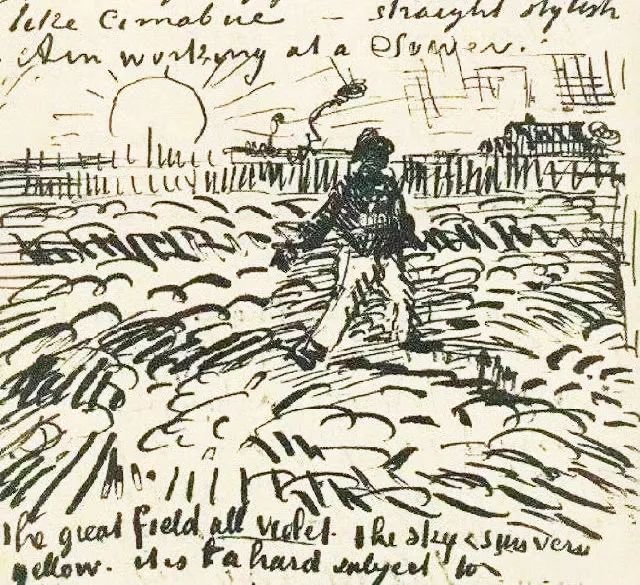 like Cimabue — straight stylish
Am working at a Sower.
the great field all violet. the sky & sun very
yellow. it is a hard subject to